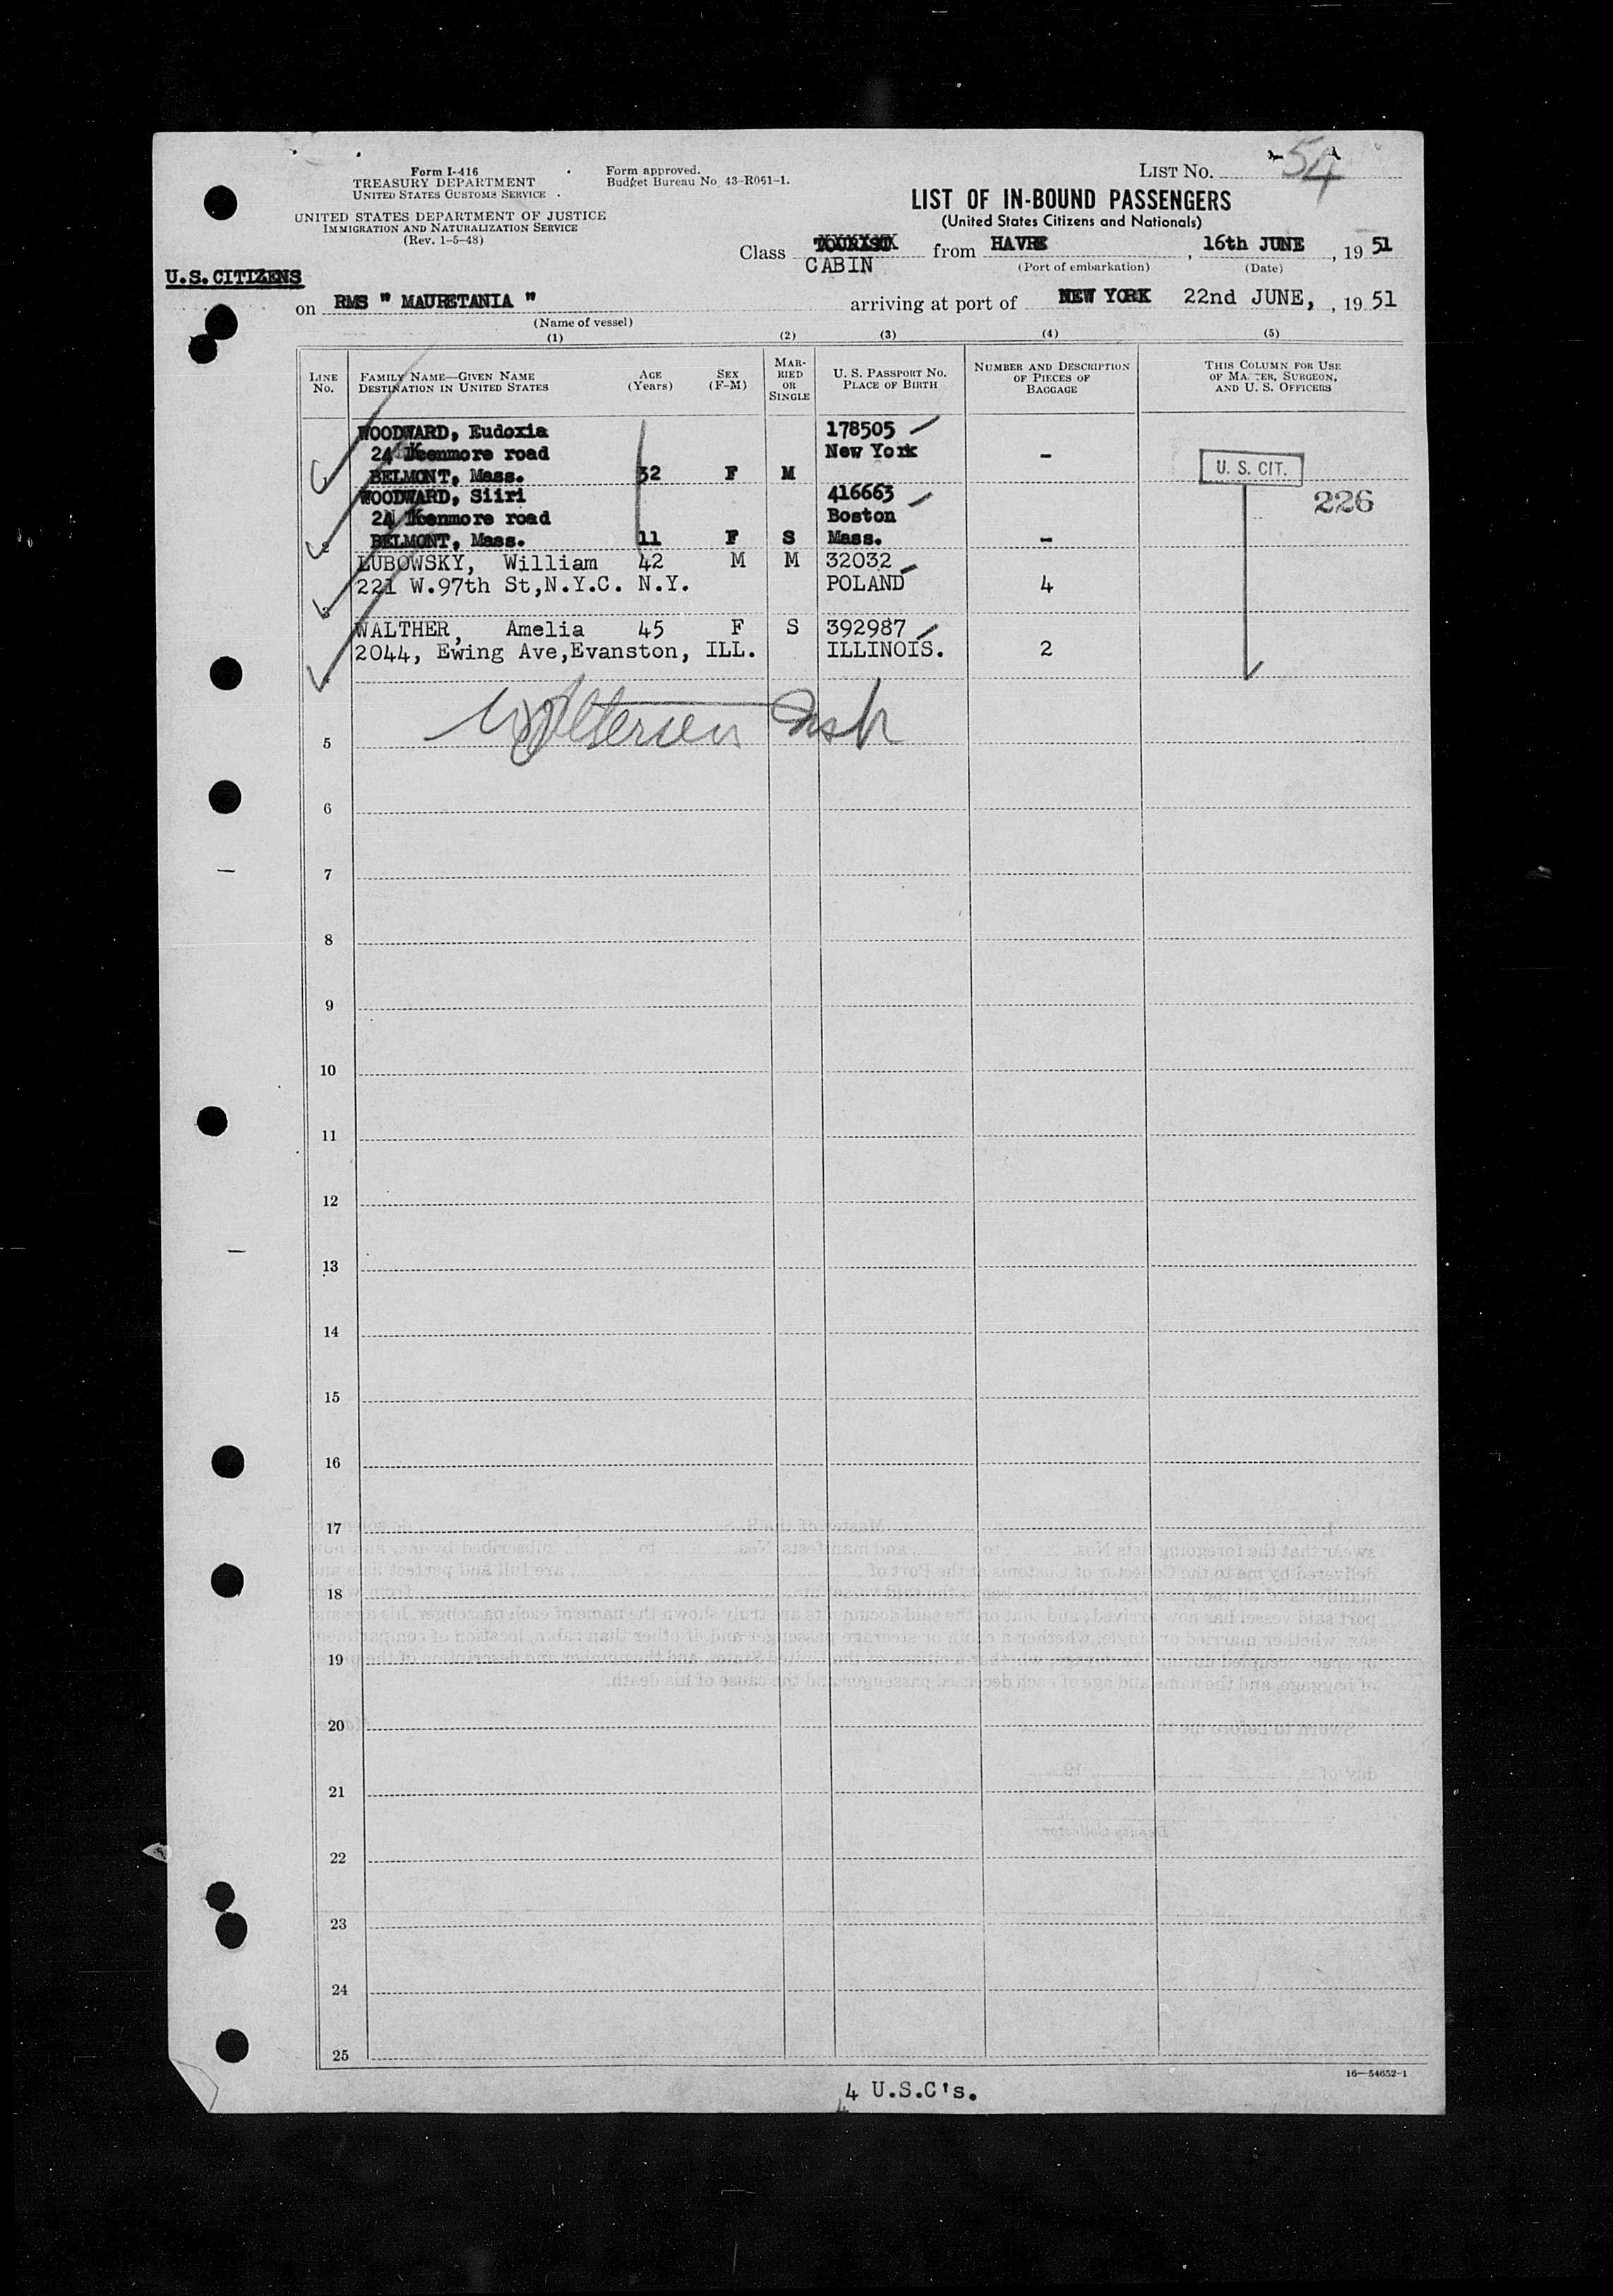 Form I-416
TREASURY DEPARTMENT
UNITED STATES CUSTOMS SERVICE
UNITED STATES DEPARTMENT OF JUSTICE
IMMIGRATION AND NATURALIZATION SERVICE
(Rev. 1-5-48)
Form approved.
Budget Bureau No. 43-R061-1.
LIST No. 54
LIST OF IN-BOUND PASSENGERS
(United States Citizens and Nationals)
Class TOURIST from HAVRE, 16th JUNE, 1951
CABIN (Port of embarkation) (Date)
U.S.CITIZENS
on RMS " MAURETANIA " arriving at port of NEW YORK 22nd JUNE, , 1951
(Name of vessel)
(1) (2) (3) (4) (5)
LINE No.
FAMILY NAME—GIVEN NAME
DESTINATION IN UNITED STATES
AGE (Years)
SEX (F-M)
MARRIED OR SINGLE
U. S. PASSPORT NO.
PLACE OF BIRTH
NUMBER AND DESCRIPTION OF PIECES OF BAGGAGE
THIS COLUMN FOR USE OF MASTER, SURGEON, AND U. S. OFFICERS
WOODWARD, Eudoxia 178505
24 Keenmore road New York -
1 BELMONT, Mass. 32 F M
U. S. CIT.
WOODWARD, Siiri 416663
226
24 Keenmore road Boston
2 BELMONT, Mass. 11 F S Mass. -
LUBOWSKY, William 42 M M 32032
221 W.97th St,N.Y.C. N.Y. POLAND 4
3
WALTHER, Amelia 45 F S 392987
2044, Ewing Ave,Evanston, ILL. ILLINOIS. 2
4
5
6
7
8
9
10
11
12
13
14
15
16
17
18
19
20
21
22
23
24
25
16—54652-1
4 U.S.C's.